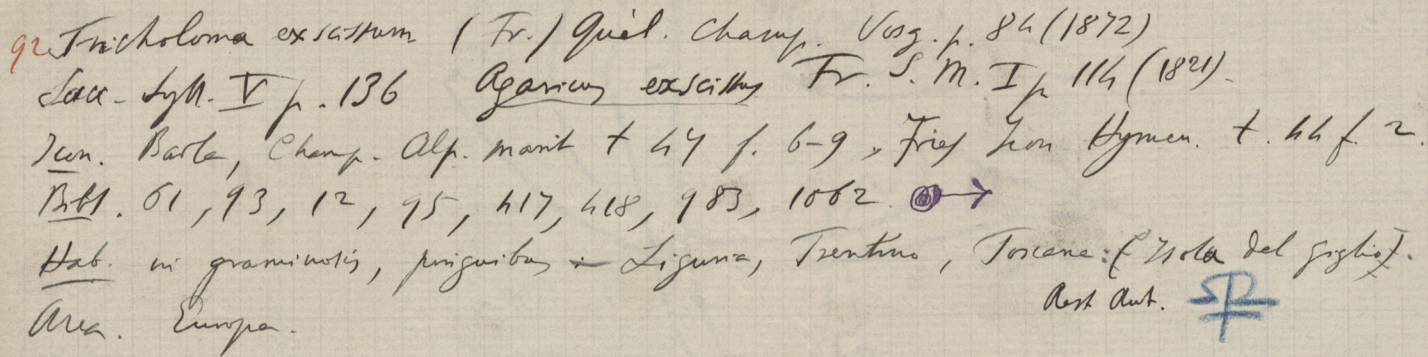 92 Tricholoma exscissum (Fr.) Quél. Champ. Vosg. p. 84 (1872)
Sacc. Syll. V p. 136 Agaricus exscissus Fr. S. M. I p 114 (1821).
Icon. Barla, Champ. Alp. marit t 47 f. 6-9, Fries Icon Hymen. t. 44 f. 2.
Bibl. 61, 93, 12, 95, 417, 418, 983, 1062.
Hab. in graminosis, pinguibus - Liguria, Trentino, Toscana: (Isola del giglio).
Aut.
Area. Europa.